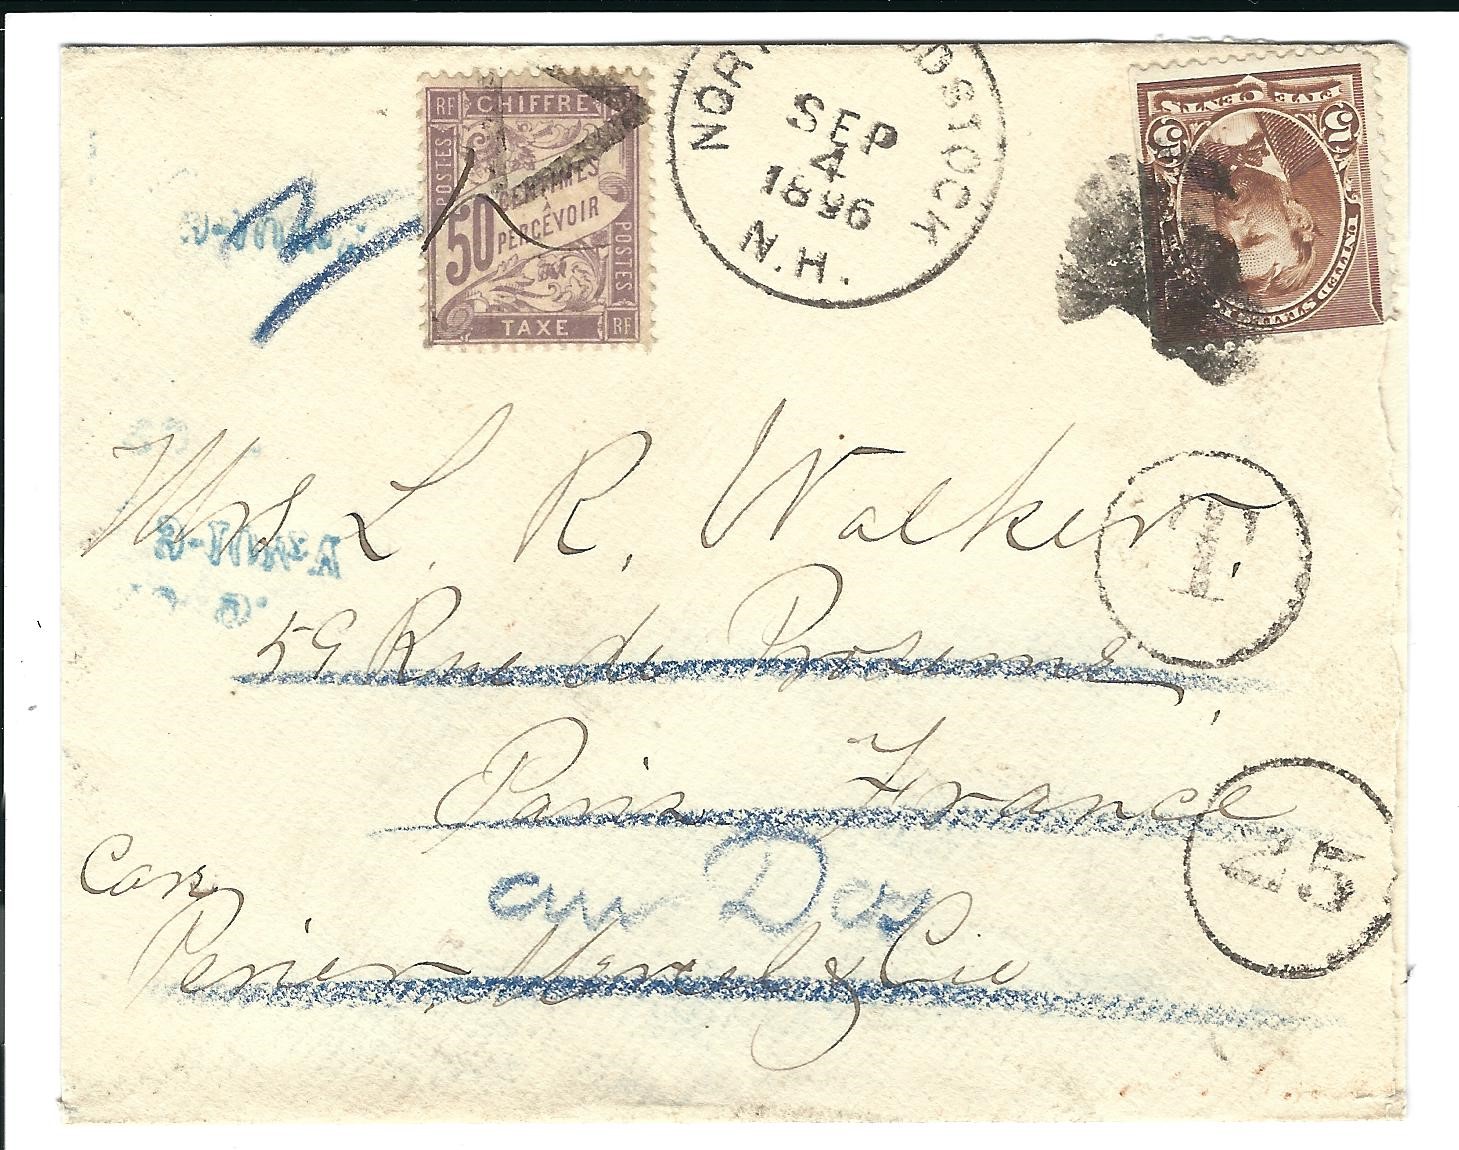 RF CHIFFRE
POSTES
50 CENTIMES
À
PERCEVOIR
POSTES
TAXE RF
NORTH WOODSTOCK
SEP
4
1896
N.H.
FIVE CENTS
5 5
UNITED STATES
Mrs L. R. Walker.
T
59 Rue de
Paris France
25
Care
au Dos
Perier, & Cie